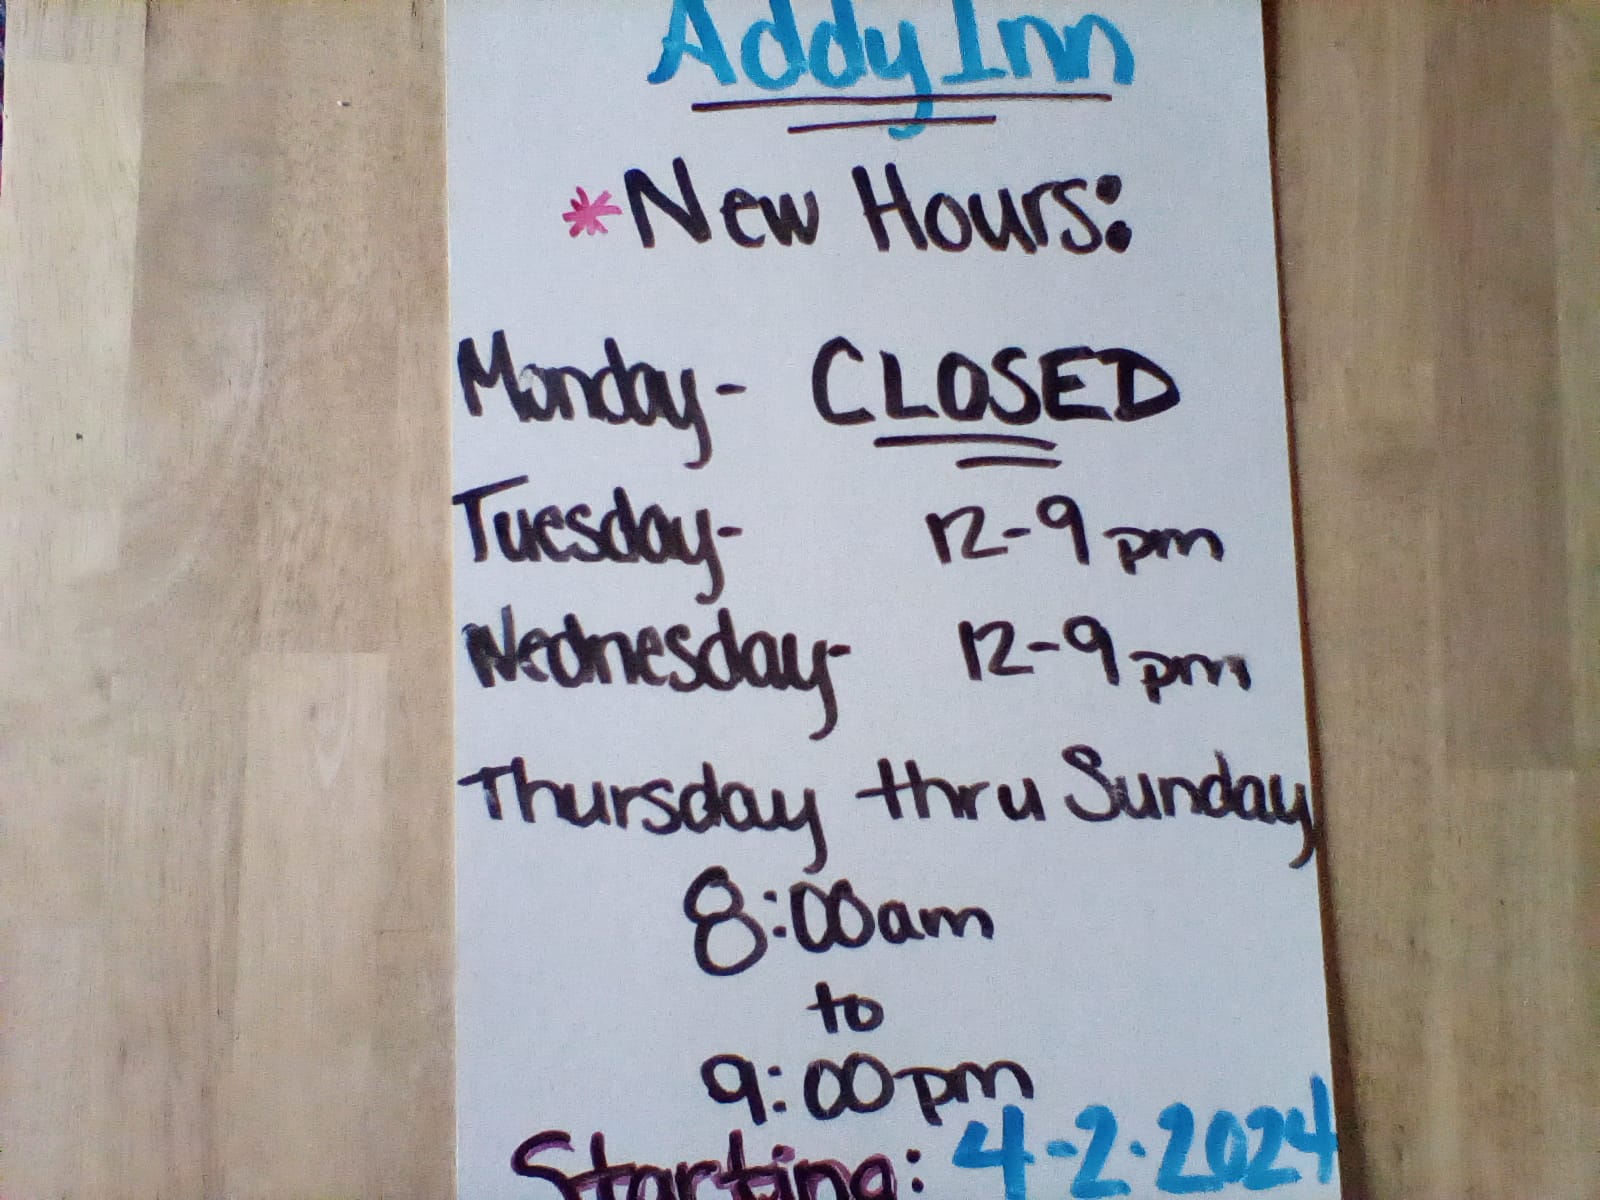 Addy Inn
*New Hours:
Monday- CLOSED
Tuesday- 12-9pm
Wednesday- 12-9pm
Thursday thru Sunday
8:00am
to
9:00pm
Starting: 4-2-2024